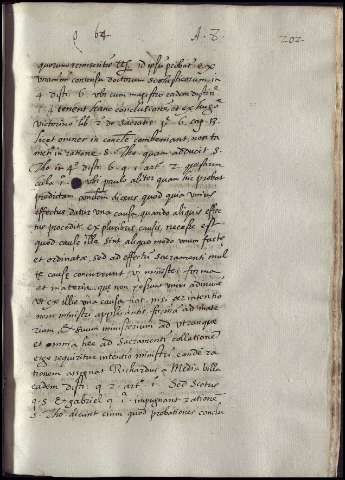 q 64 A. 2. 202
quorum id ipsum probat ex
communi consensu doctorum scholasticorum in
4. dist. 6. ubi cum magistro eadem distin.
tenent hanc conclutionem et ex
victorino lib. 2. de sacratis p. 6. cap. 13.
licet omnes in concle. conveniant, non ta
men in ratione s. Tho. quam adducit s.
Tho. in 4. dist. 6. q. 1. art. 2.
cula 1. ubi paulo aliter quam hic probat
predictam dicens quod quia unius
effectus datur una causa quando aliquis effec
tus procedit ex pluribus causis, necesse est
quod cause ille sint aliquo modo unum facte
et ordinate, sed ad effectum sacramenti mul
te cause concurrunt ut minister forma
et materia, que non possunt uniri adinvic
ut ex illis una causa fiat, nisi per intentio
nem ministri applicantis formam ad mate
riam, & suum ministerium ad utranque
et omnia hec ad sacramenti collationem
ergo requiritur intentio ministri, eandem ra
tionem assignat Richardus a Media villa
eadem dist. q. 2. art. 1. Sed Scotus
q. 5. & gabriel q. 1. impugnant rationem
s. Tho. dicunt enim quod probationes conclu